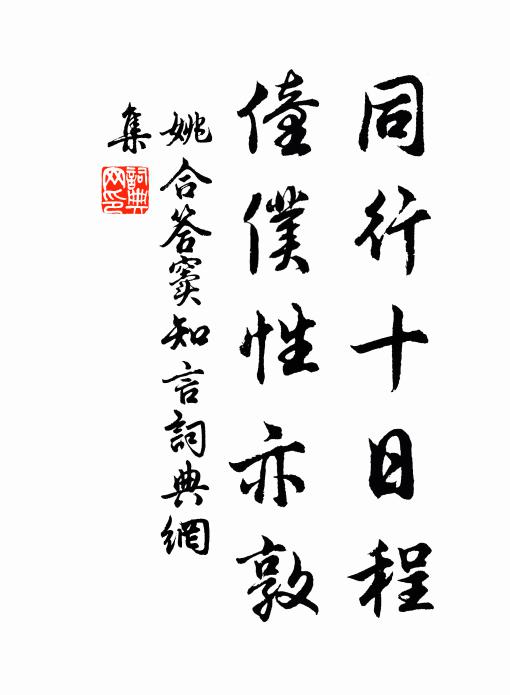 同行十日程
僮僕性亦敦
姚合答竇知言詞典網
集
詞典网印